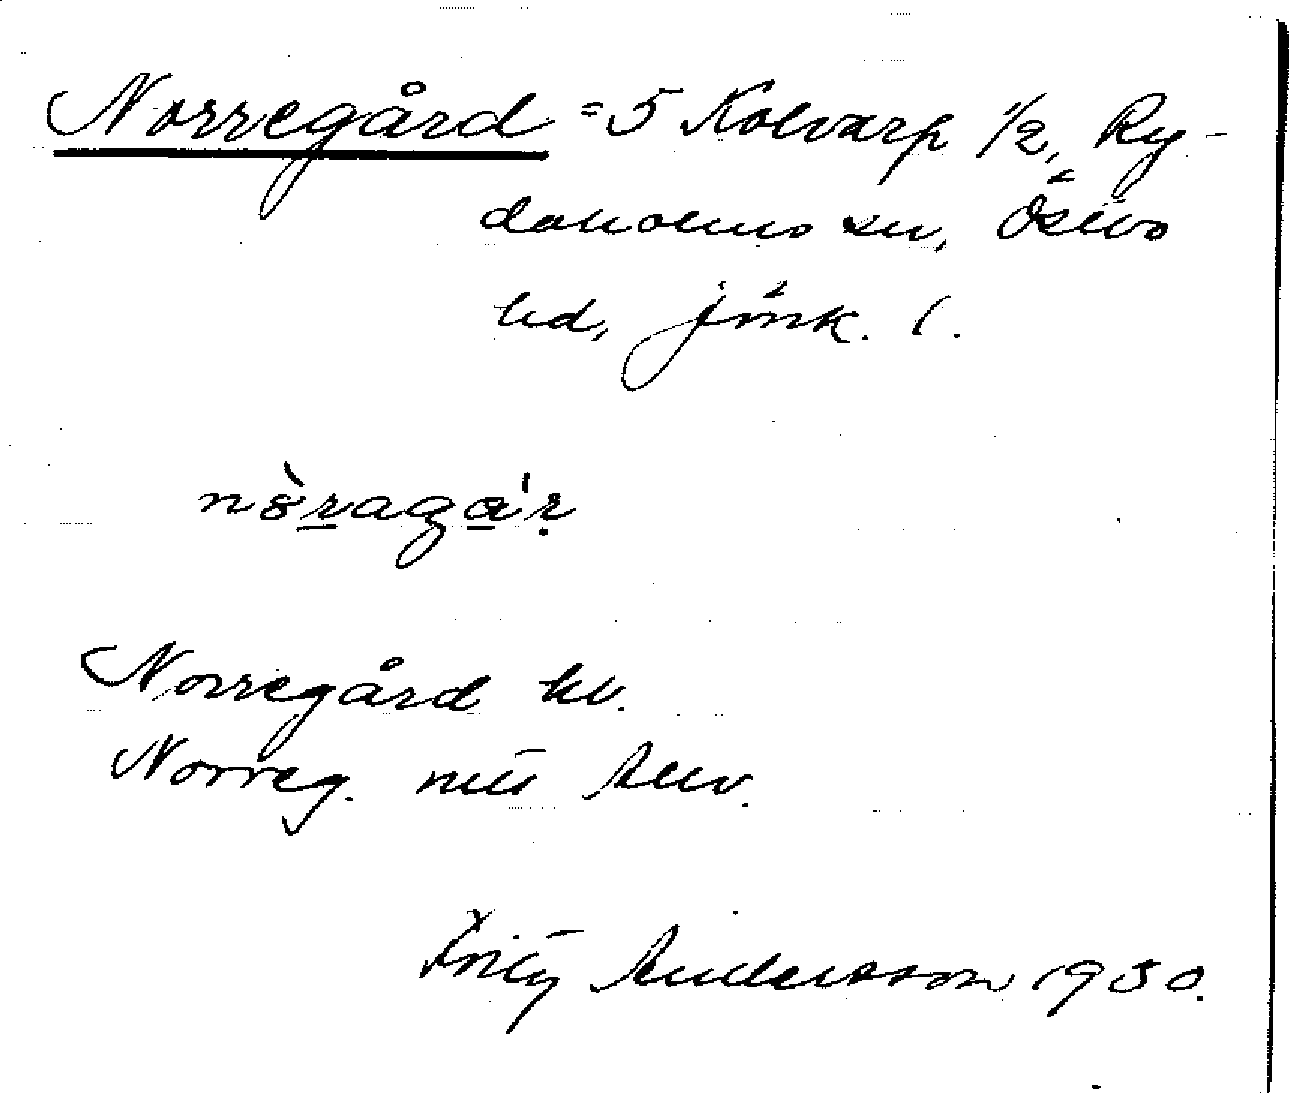 Norregård = 5 Kolvarp 1/2, Ry-
daholms sn, Östbo
hd, Jönk. l.
nòragá'r
Norregård hv.
Norreg. mtl Anv.
Fritz Andersson 1930.